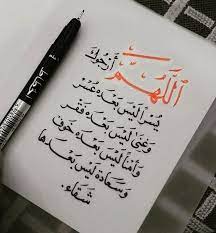 اللهم أرزقك
يسرا ليس بعده عسر
وغنى ليس بعده فقر
وأمنا ليس بعده خوف
وسعادة ليس بعدها
شقاء.